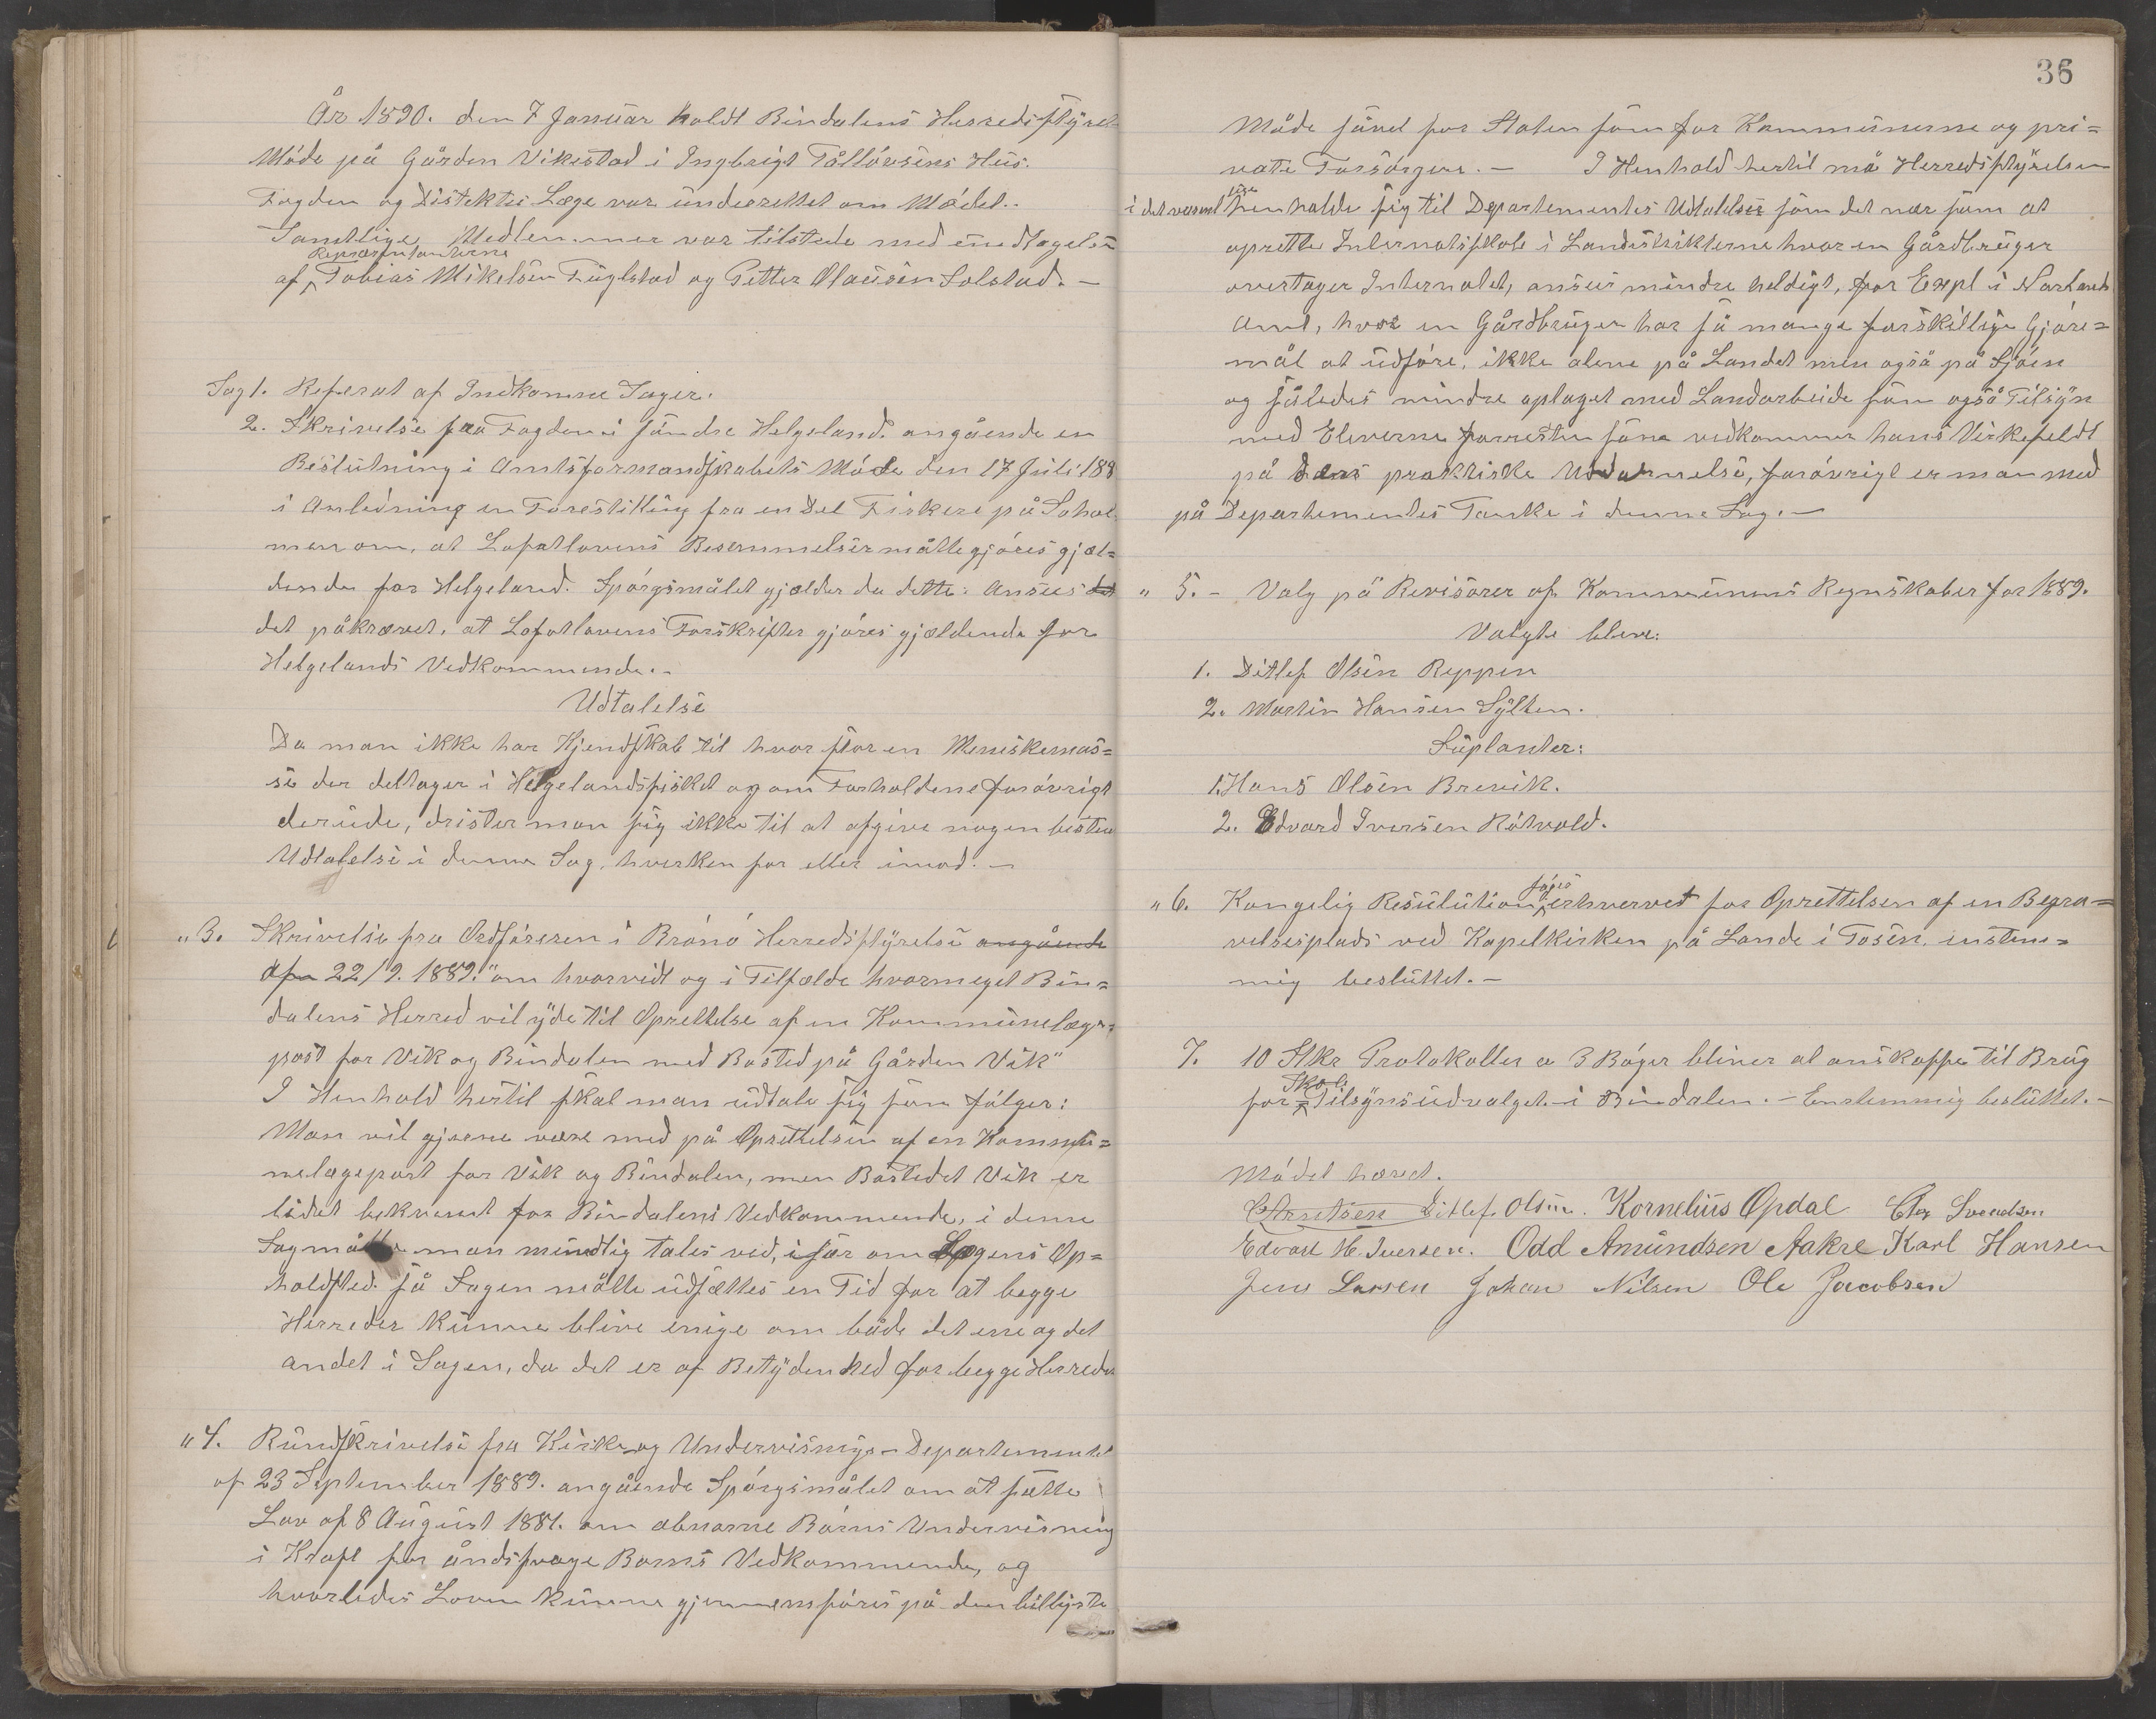 År 1890. den 7 Januar holdt Bindalens Herredsstyrel
Møde på Gården Vikestad i Ingbrigt Tålløvsens Hus.
Fogden og Distektes Læge var underrettet om Mødet..
Samtlige Medlemmer var tilstede med undtagelse
Repræsentanterne
af Tobias Mikelsen Fuglstad og Petter Olausen Solstad. —
Sag 1. Referat af Indkomne Sager.
2. Skrivelse fra Fogden i søndre Helgeland. angående en
Beslutning i Amtsformandskabets Møde den 17 Juli 188
i Anledning en Forestilling fra en Del Fiskere på Sohol
men om, at Lofotlovens Besemmelser måtte gjøres gjæl=
dende for Helgeland. Spørgsmålet gjælder da dette: Ansees det
det påkrævet, at Lofotlovens Forskrifter gjøres gjældende for
Helgelands Vedkommende..
Udtalelse
Da man ikke har Kjendskab til hvor stor en Meniskemas=
se der deltager i Helgelandsfisket og om Forholdene forøvrigt
derude, drister man sig ikke til at afgive nogen bestem
Udtalelse i denne Sag, hverken for eller imod. —
"3. Skrivelse fra Ordføreren i Brønø Herredsstyrelse angående
af 22/9. 1889. "om hvorvidt og i Tilfælde hvormeget Bin=
dalens Herred vil yde til Oprettelse af en Kommunelæge=
post for Vik og Bindalen med Bosted på Gården Vik"
I Henhold hertil skal man udtale sig som følger:
Man vil gjerne være med på Oprettelsen af en Kommu=
nelægepost for Vik og Bindalen, men Bostedet Vik er
lidet bekvemt for Bindalens Vedkommende, i denne
Sag måtte man mundtlig tales ved, især om Lægens Op=
holdsted. så Sagen måtte udsættes en Tid for at begge
Herreder kunne blive enige om både det ene og det
andet i Sagen, da det er af Betydenhed for begge Herreder
"4. Rundskrivelse fra Kirke og Undervisnings-Departementet
af 23 September 1889. angående Spørgsmålet om at sætte
Lov af 8 August 1881. om abnorme Børns Undervisning
i Kraft for åndssvage Børns Vedkommende, og
hvorledes Loven kunne gjennemføres på den billigste
36
Måde såvel for Staten som for Kommunerne og pri=
vate Forsørgere. — I Henhold hertil må Herredsstyrelsen
i det væsentlige henholde sig til Departementes Udtalelse som det nær som at
oprette Internatskole i Landistrikterne hvor en Gårdbruger
overtager Internatet, ansees mindre heldigt, for Expl i Nordlands
Amt, hvor en Gårdbruger har så mange forskillige Gjøre=
mål at udføre, ikke alene på Landet men også på Sjøen
og således mindre optaget med Landarbeide som også Tilsyn
med Eleverne forresten söna vedkommer hans Virkefeldt
på deres praktiske Uddannelse, forøvrigt er man med
på Departementes Tanke i denne Sag. —
" 5. - Valg på Revisorer af Kommunens Regnskaber for 1889.
Valgte blev:
1. Ditlef Olsen Reppen
2. Martin Hansen Sylten.
Suplanter:
1. Hans Olsen Brevik.
2. Edvard Iversen Røtvold.
" 6. Kongelig Resulution søges erhvervet for Oprettelsen af en Begra=
velsesplads ved Kapelkirken på Lande i Tosen. enstem=
mig besluttet. —
7. 10 Stkr Protokoller a 3 Bøger bliver at anskaffe til Brug
for Skole Tilsynsudvalget i Bindalen. — Enstemmig besluttet. —
Mødet hævet.
Ditlef Olsen. Kornelius Opdal Chr Svendsen
Edvard H. Iversen. Odd Amundsen Aakre Karl Hansen
Jens Larsen Johan Nilsen Ole Jacobsen